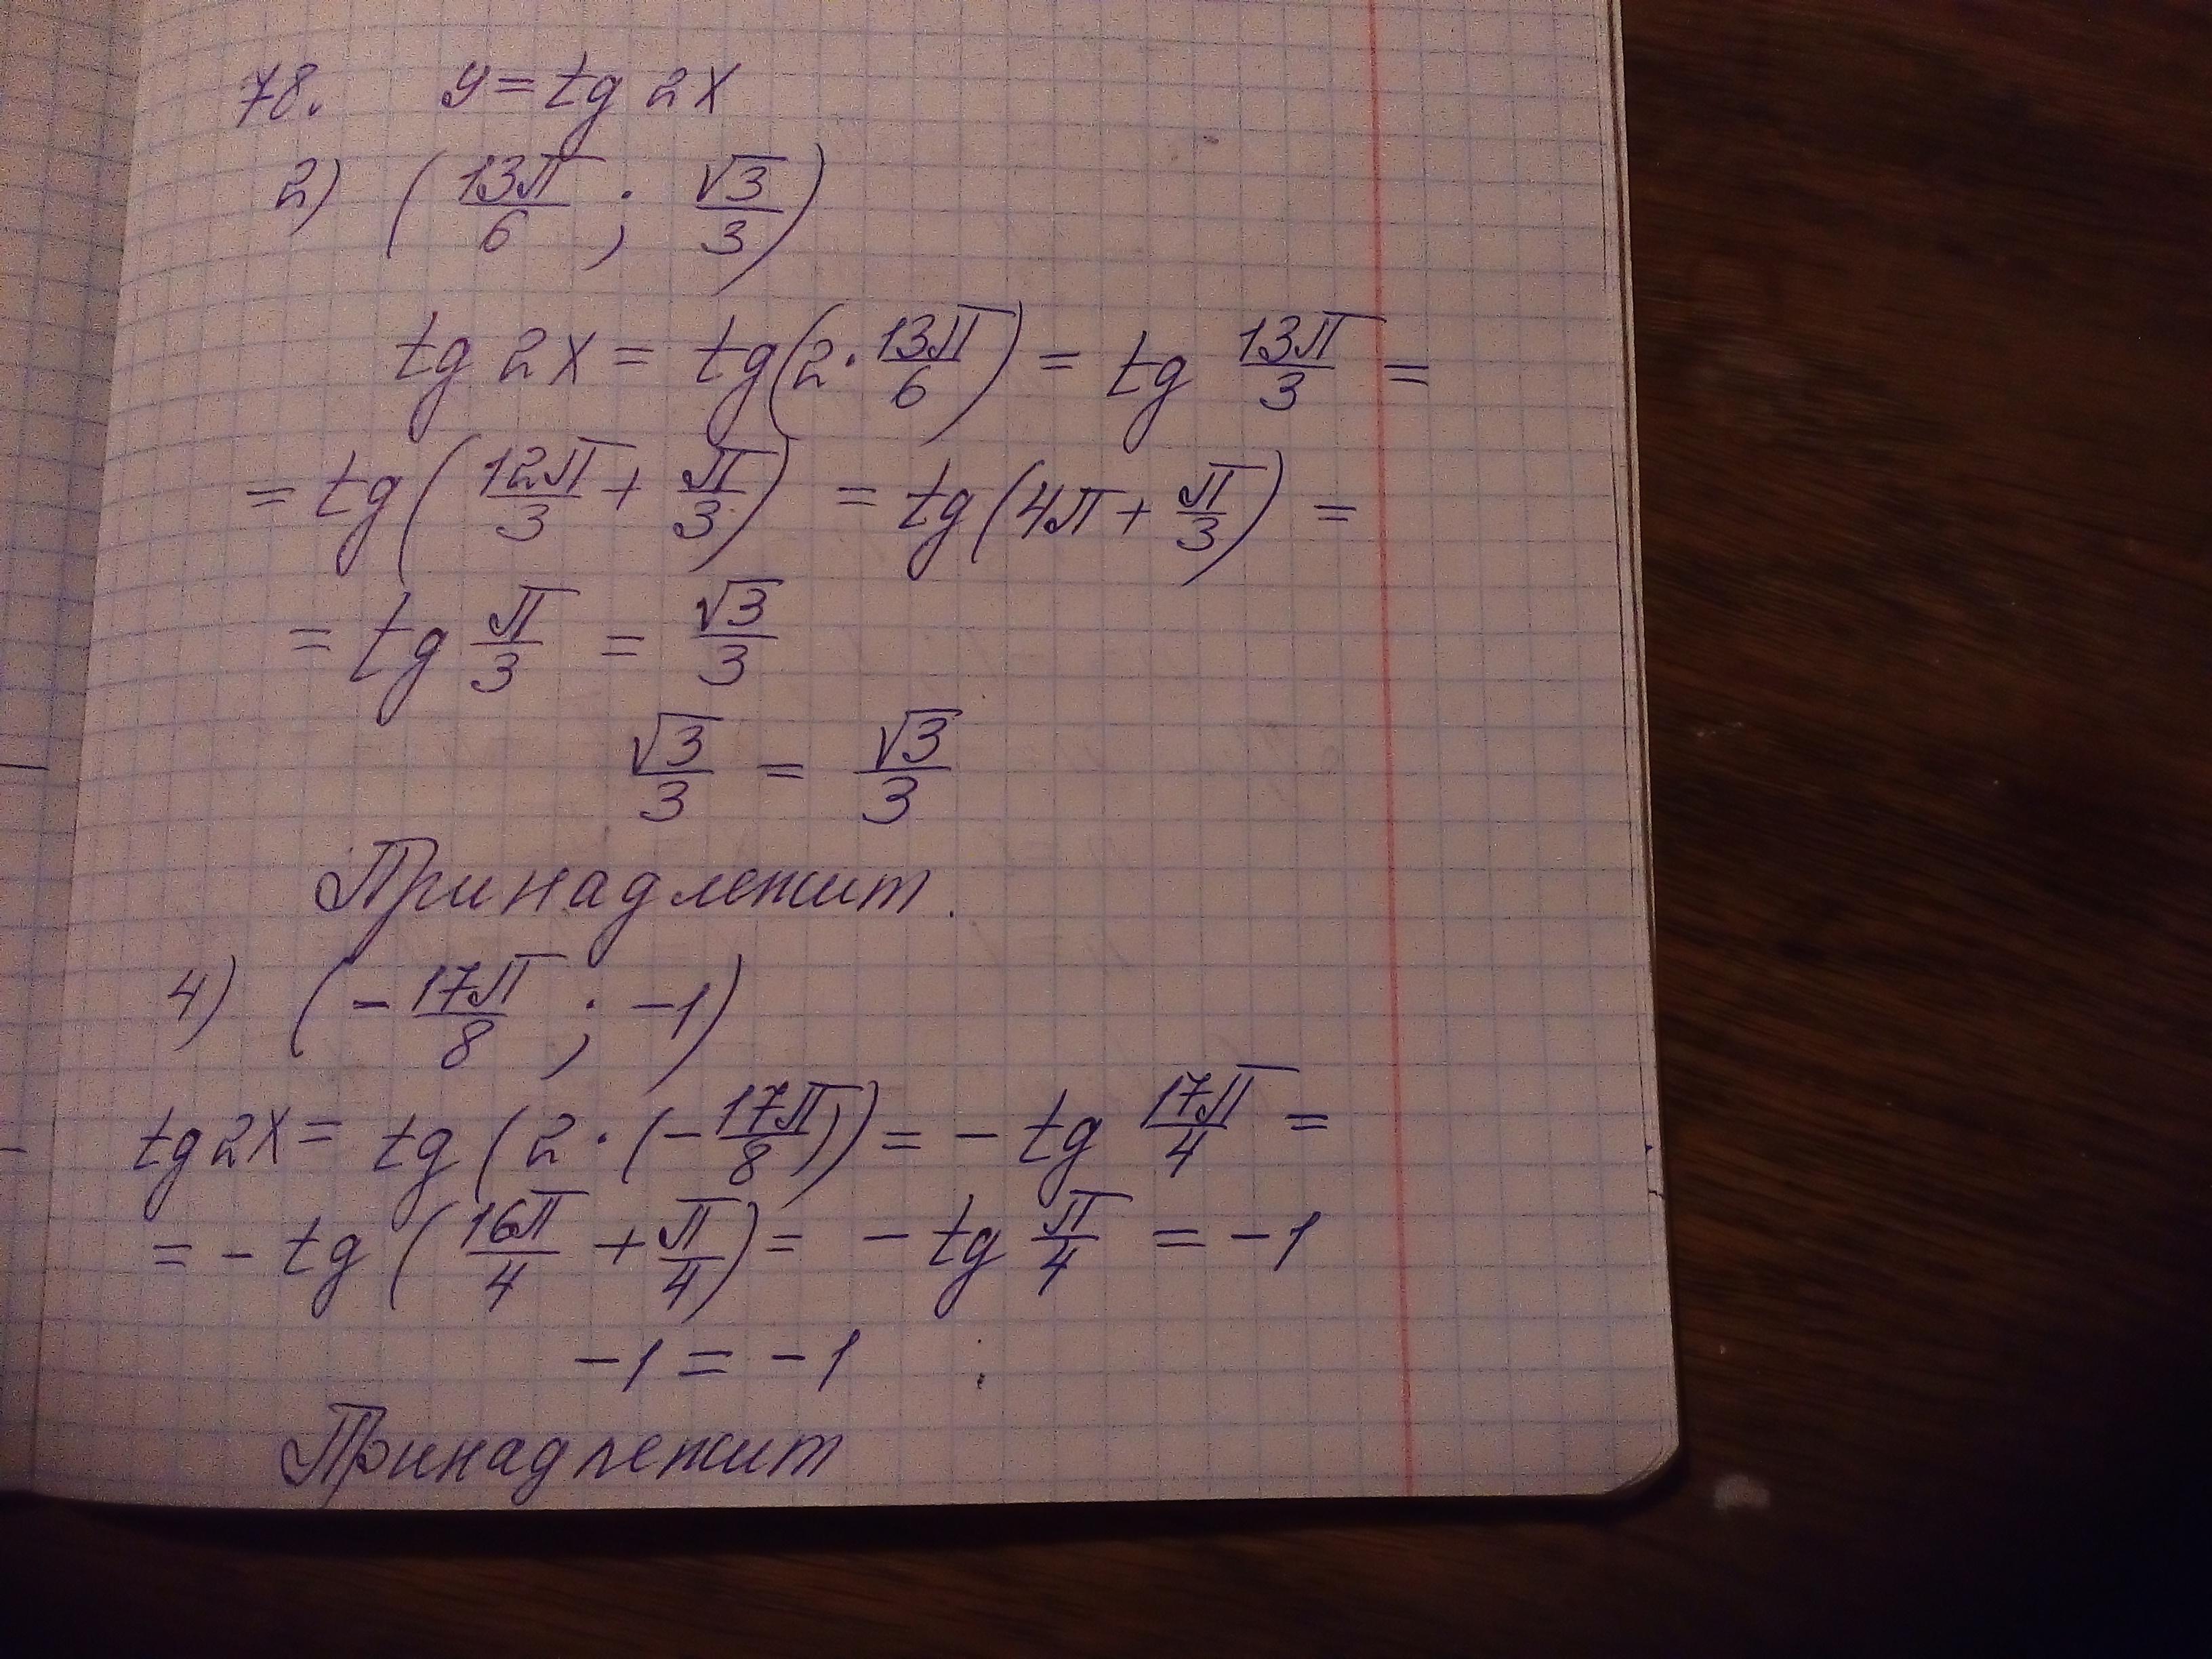 78. y = tg 2x
2) (13π/6 ; √3/3)
tg 2x = tg(2 · 13π/6) = tg 13π/3 =
= tg(12π/3 + π/3) = tg(4π + π/3) =
= tg π/3 = √3/3
√3/3 = √3/3
Принадлежит.
4) (- 17π/8 ; -1)
tg 2x = tg(2 · (- 17π/8)) = - tg 17π/4 =
= - tg(16π/4 + π/4) = - tg π/4 = -1
-1 = -1
Принадлежит